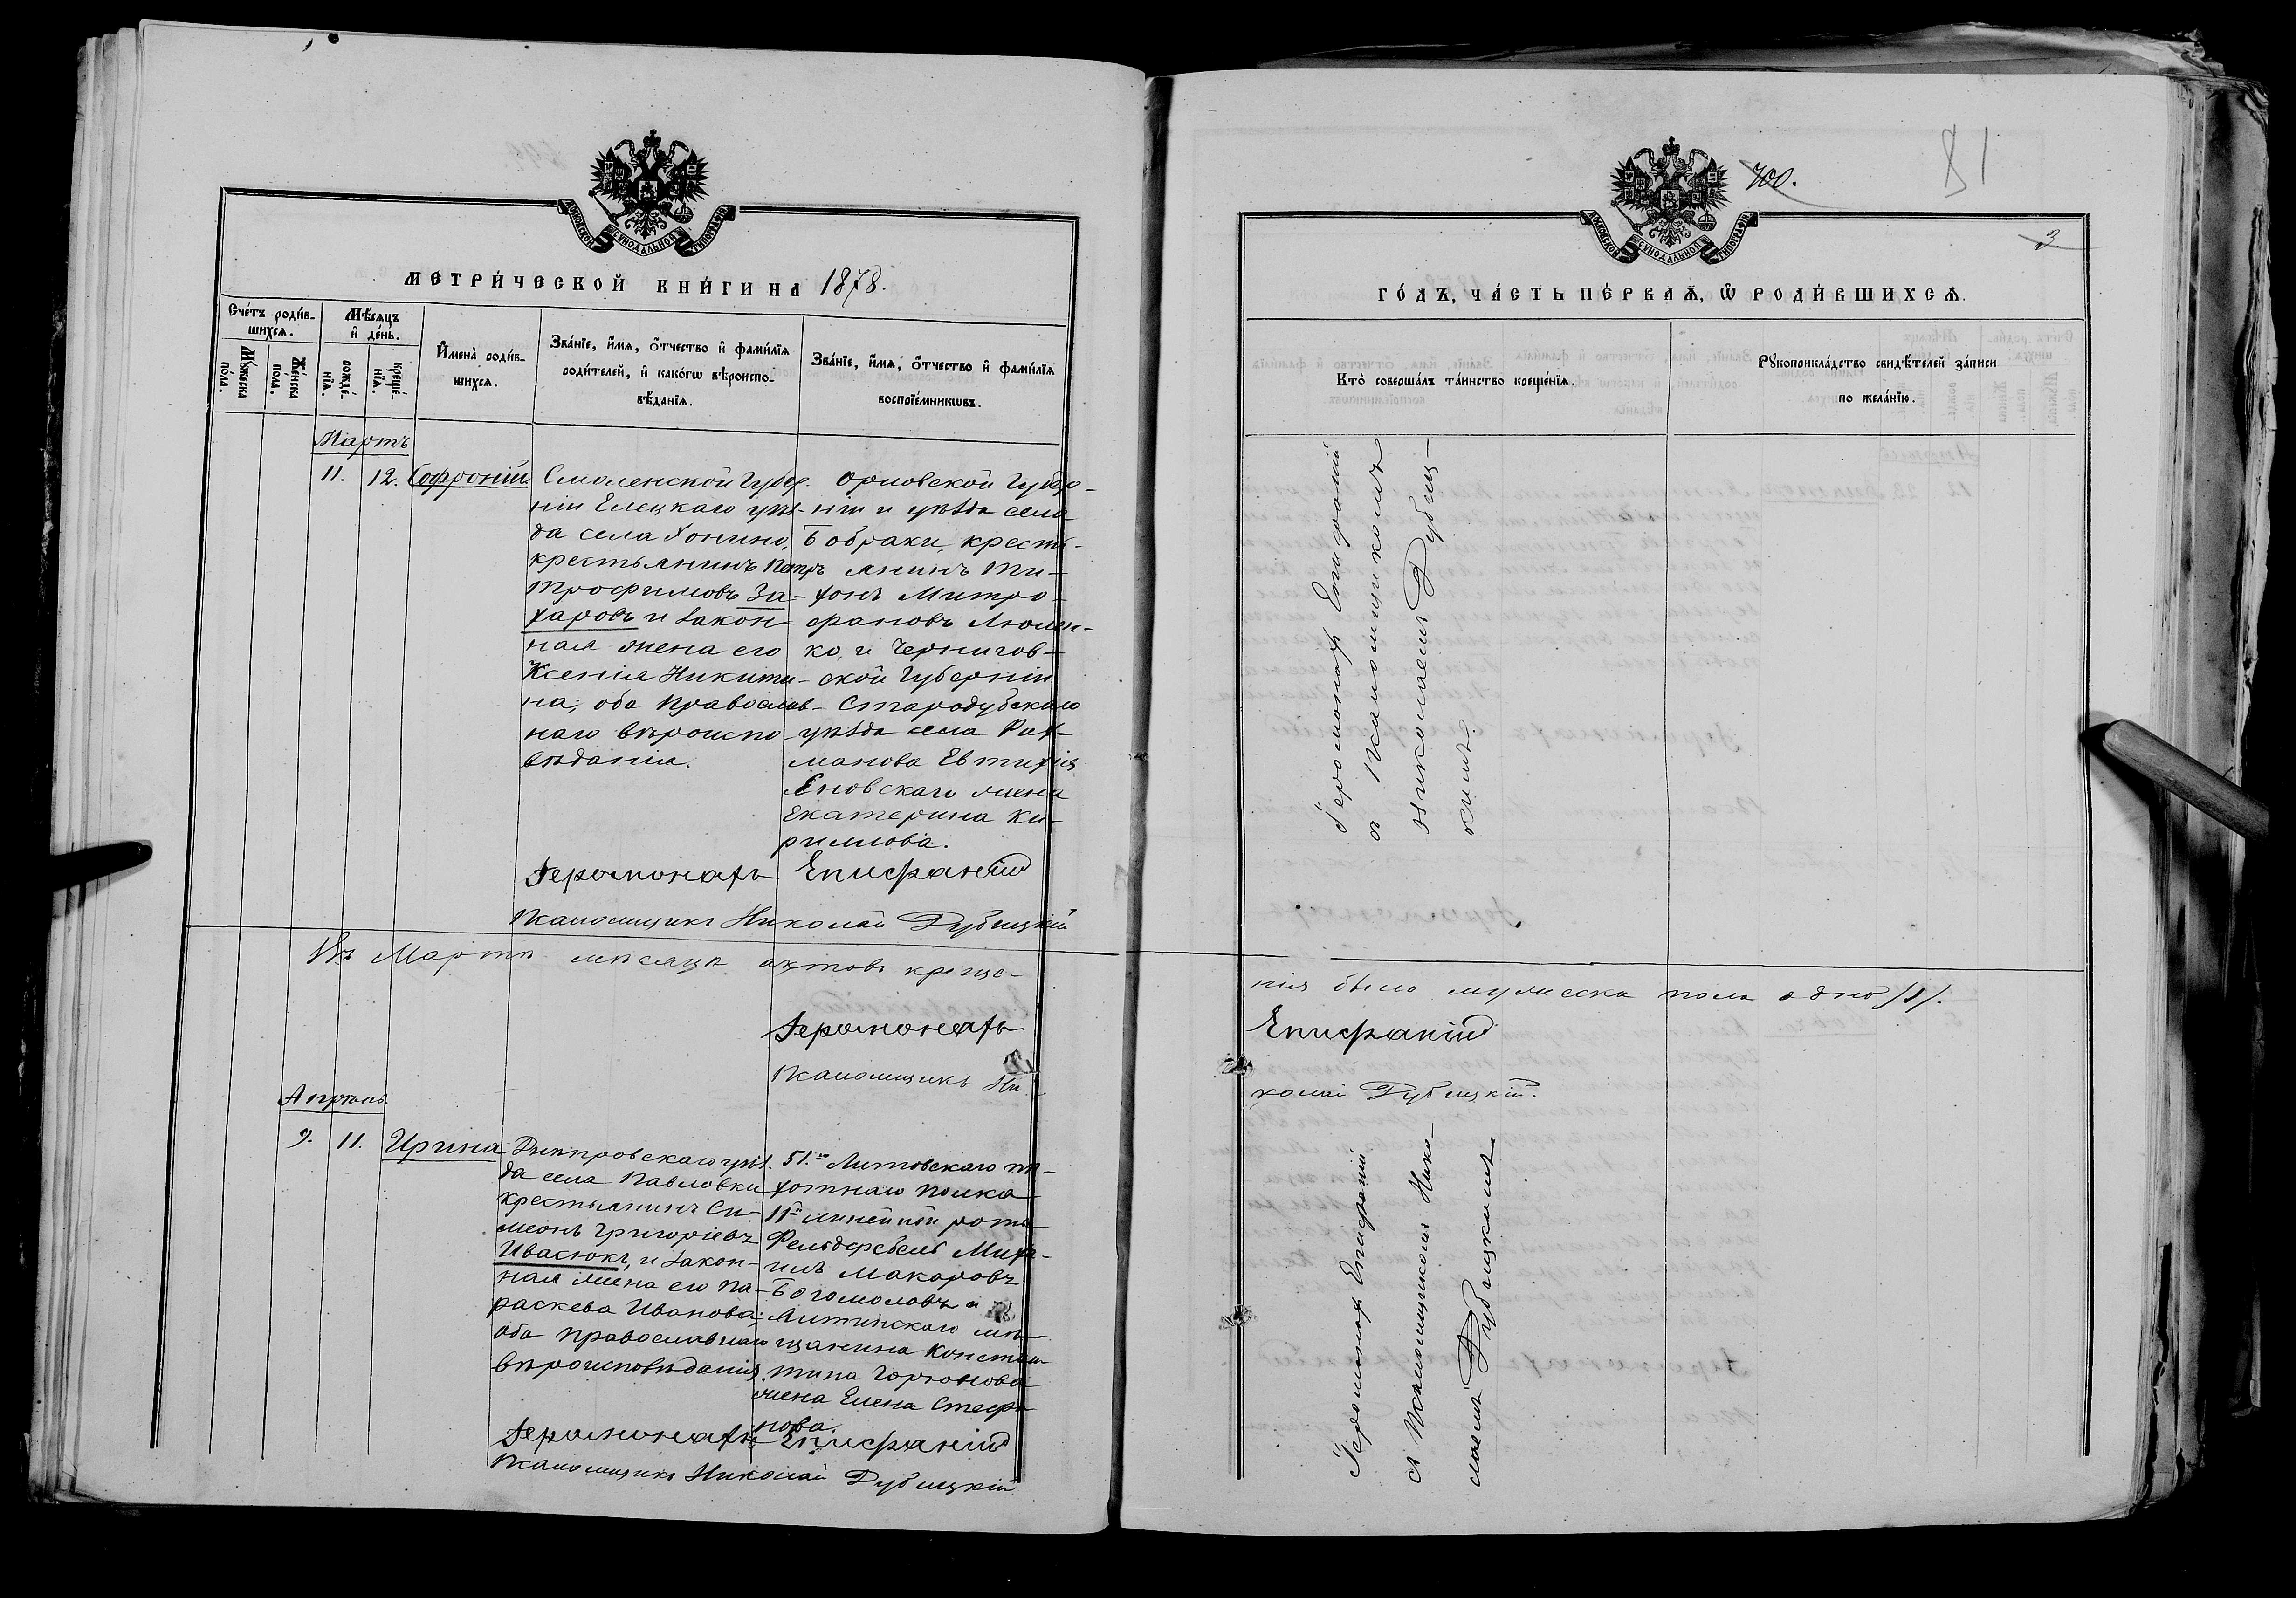 МОСКОВСКОЙ СѴНОДАЛЬНОЙ ТИПОГРАФІИ
МЕТРИ́ЧЕСКОЙ КНИ́ГИ НА 1878.
Сче́тъ роди́в-
шихсѧ.
Мѣ́сѧцъ
и҆ де́нь.
Мꙋ́жеска
по́ла.
Же́нска
по́ла.
рожде́-
нїѧ.
креще́-
нїѧ.
И҆мена̀ роди́в-
шихсѧ.
Зва́нїе, и҆́мѧ, ѻ҆́тчество и҆ фами́лїѧ
роди́телей, и҆ како́гѡ вѣроиспо-
вѣ́данїѧ.
Зва́нїе, и҆́мѧ, ѻ҆́тчество и҆ фами́лїѧ
воспрїе́мникѡвъ.
Мартъ
11. 12. Софроній
Смоленской Губер.
ніи Елецкаго уѣз-
да села
крестьянинъ Петръ
Трофимовъ За-
харовъ и закон-
ная жена его
Ксенія Никити-
на; оба православ-
наго вѣроиспо-
вѣданія.
Орловской Губер-
ніи и уѣзда села
Бобраки, кресть-
янинъ Ти-
хонъ Митро-
фановъ Люмен-
ко, и Чернигов-
ской Губерніи
Стародубскаго
уѣзда села Рах-
манова Евтихія
Яновскаго жена
Екатерина Ки-
риллова.
Іеромонахъ Епифаній
Псаломщикъ Николай Дубицкій
Въ Мартѣ мѣсяцѣ актовъ креще-
Іеромонахъ
Псаломщикъ Ни-
Апрѣль
9. 11. Ирина
Днѣпровскаго уѣз.
да села Павловки
крестьянинъ Си-
меонъ Григоріевъ
Ивасюкъ, и закон-
ная жена его Па-
раскева Иванова;
оба православнаго
вѣроисповѣданія.
51.го Литовскаго пѣ-
хотнаго полка
11й линейной роты
Фельдфебель Миха-
илъ Макаровъ
Богомоловъ и
мѣ-
щанина Констан-
тина Горюнова
жена Елена Стефа
нова.
Іеромонахъ Епифаній
Псаломщикъ Николай Дубицкій
700.
81
3
МОСКОВСКОЙ СѴНОДАЛЬНОЙ ТИПОГРАФІИ
ГО́ДЪ, ЧА́СТЬ ПЕ́РВАѦ, Ѽ РОДИ́ВШИХСѦ.
Кто̀ соверша́лъ та́инство креще́нїѧ.
Рꙋкоприкла́дство свидѣ́телей за́писи
по жела́нїю.
Іеромонах Епифаній
с Псаломщикомъ
Николаемъ Дубиц-
кимъ.
нія было мужеска пола одно /1/.
Епифаній
колай Дубицкій.
Іеромонах Епифаній
съ Псаломщикомъ Нико-
лаемъ Дубицкимъ